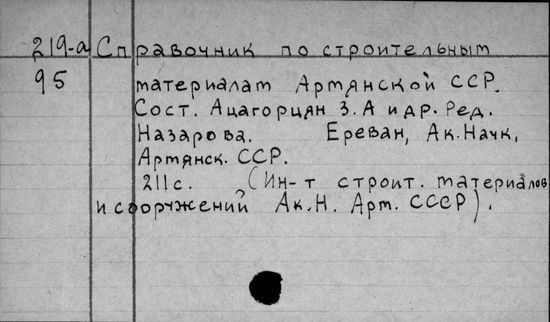 219-а Справочник по строительным
95 материалам Армянской ССР.
Сост. Ацагорцян З.А и др. Ред.
Назарова. Ереван, Ак.Наук,
Армянск. ССР.
211с. (Ин-т строит. материалов
и сооружений Ак.Н. Арм. СССР).